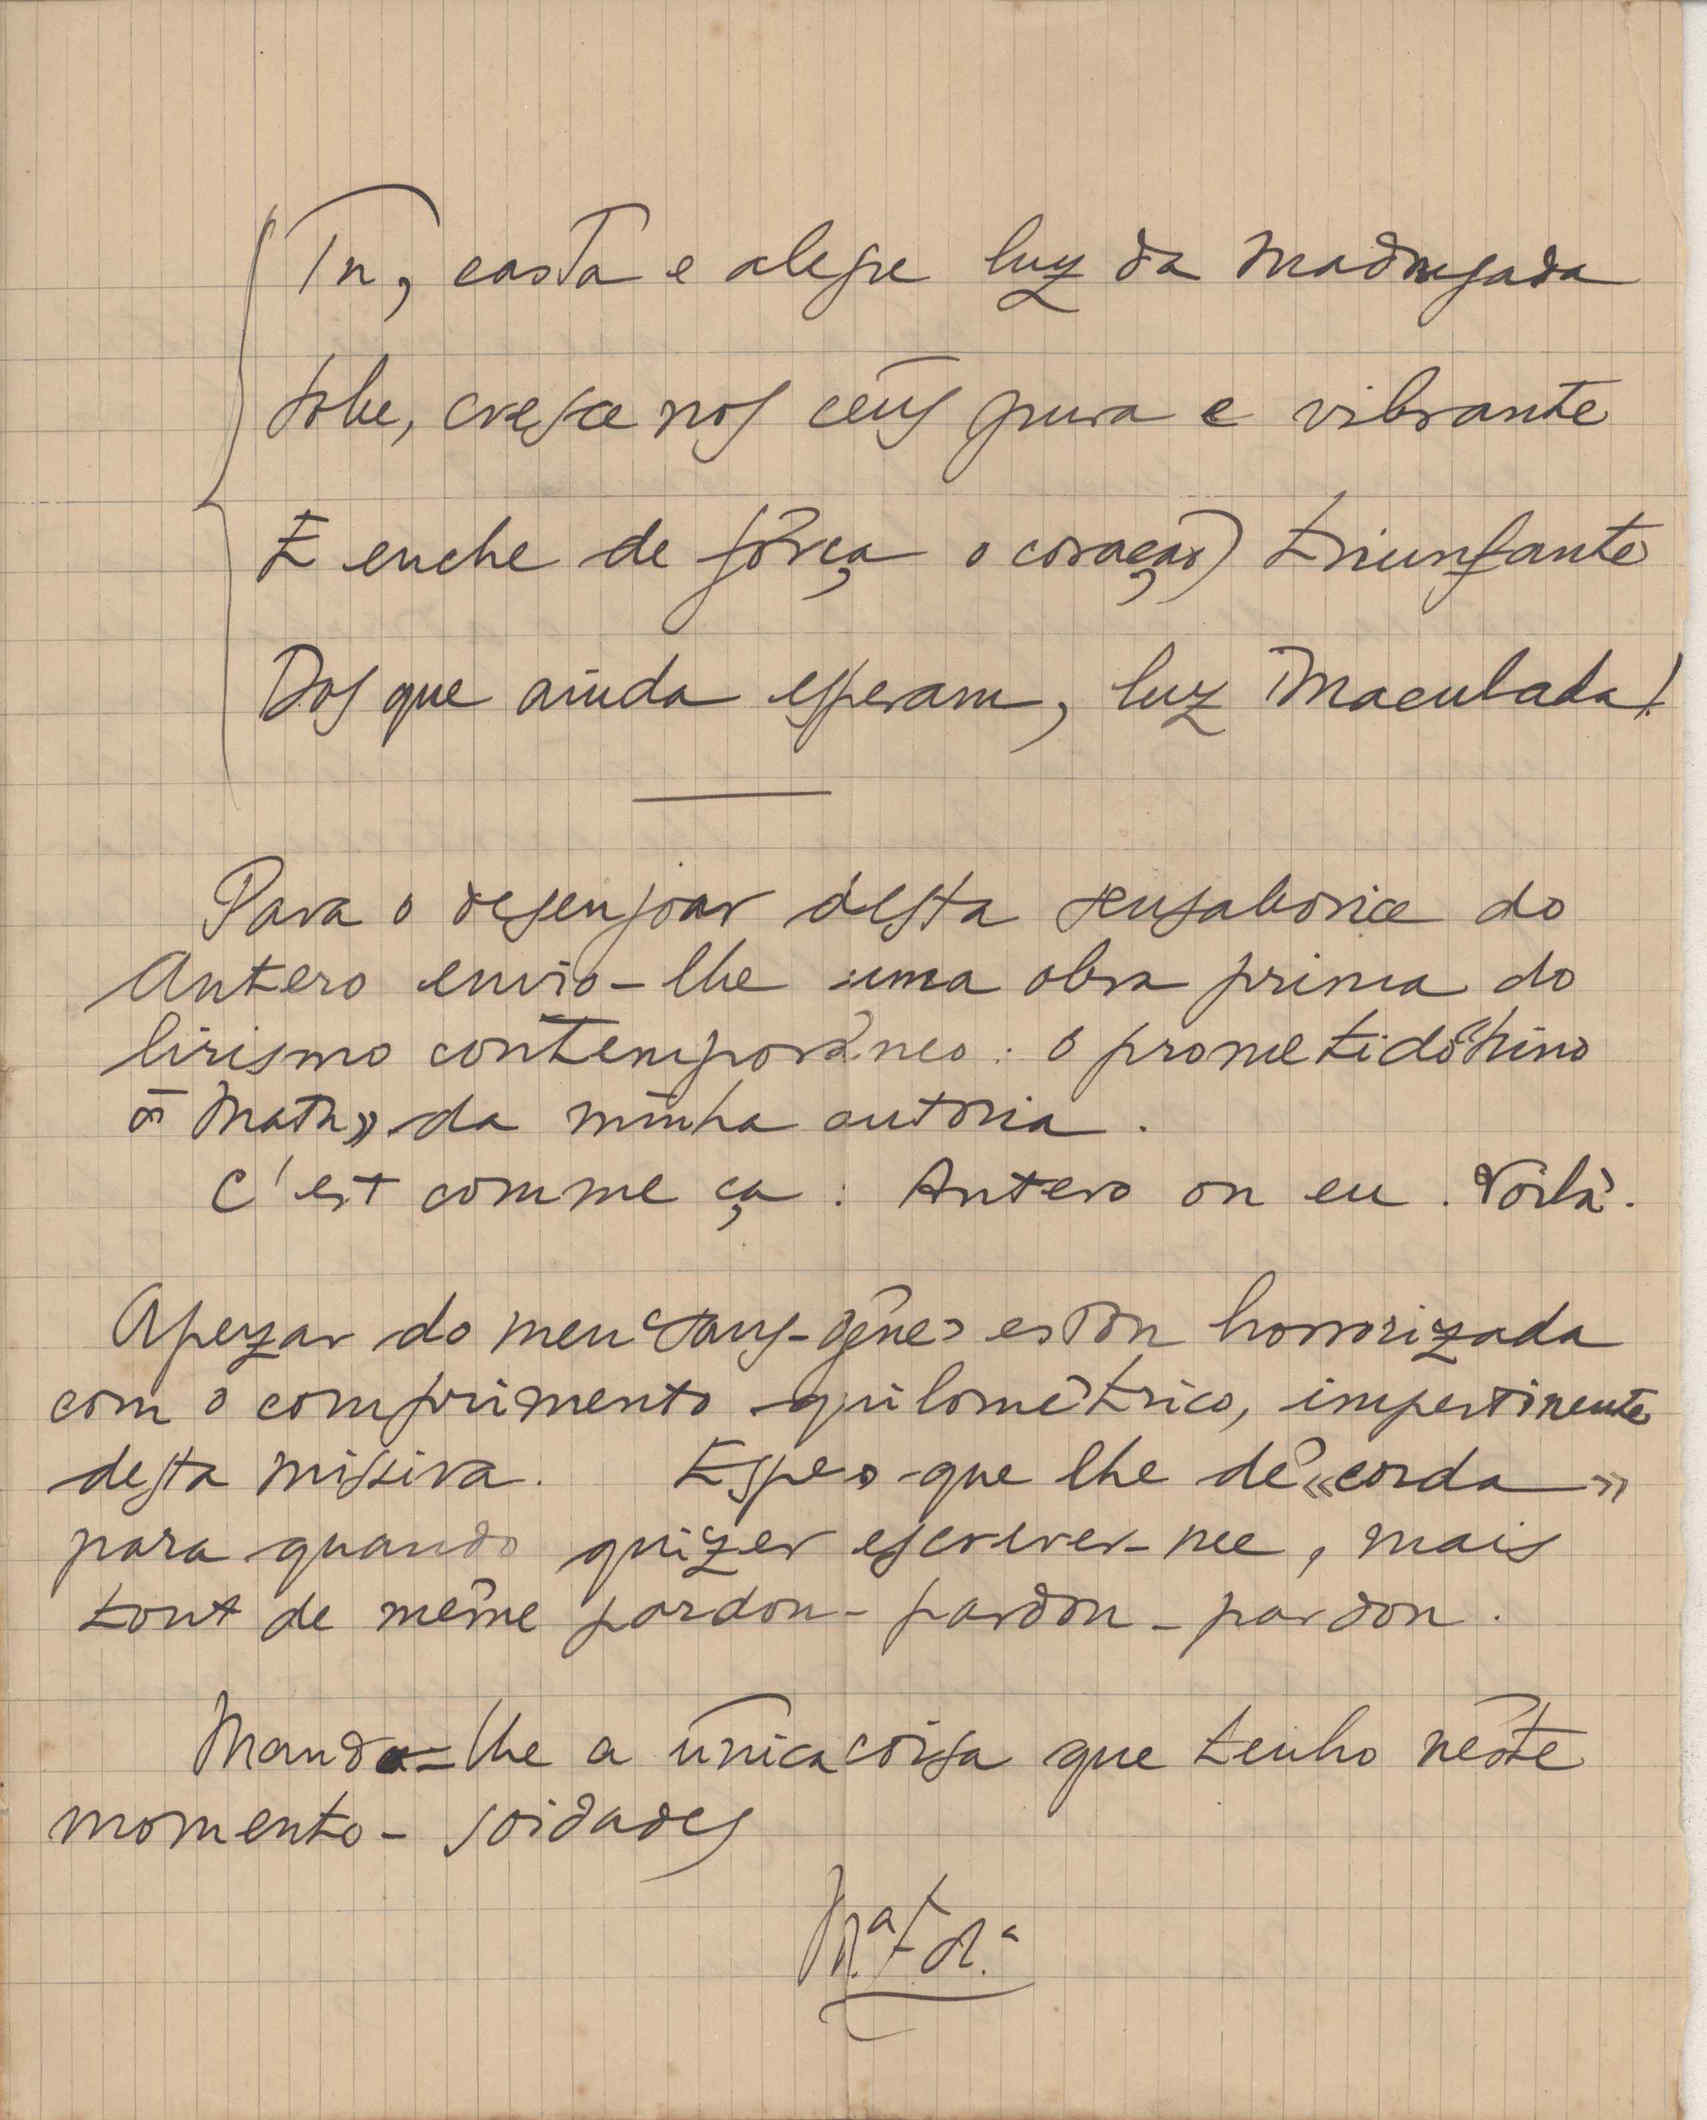 Tu, casta e alegre luz da madrugada
sobe, cresce nos céus pura e vibrante
E enche de fôrça o coração triunfante
Dos que ainda esperam, luz imaculada!
Para o desenjoar desta sensaborice do
Antero envio-lhe uma obra prima do
lirismo contemporâneo: o prometido «hino
á Mata» da minha autoria.
C'est comme ça: Antero ou eu. Voilà.
Apezar do meu «sans-gêne» estou horrorizada
com o comprimento quilométrico, impertinente
desta missiva. Espero que lhe dê «corda»
para quando quizer escrever-me, mais
tout de même pardon - pardon - pardon.
Mando-lhe a única coisa que tenho nêste
momento - soidades